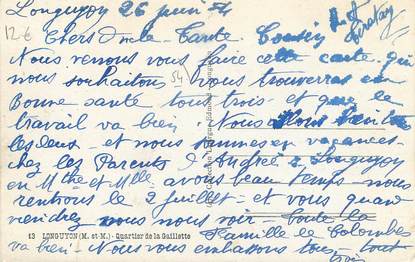 Longuyon 26 juin 54
12 €
Chers Oncle - Tante Cousin
Nous venons vous faire cette carte qui
nous souhaitons 54 vous trouverras en
Bonne santé tous trois - et que le
travail va bien Nous
les deux - et nous sommes en vacances
chez les Parents d'André a Longuyon
en Mthe et Mlle avons beau temps - nous
rentrons le 2 juillet - et vous quand
viendrez vous nous voir - toute la
13 LONGUYON (M.-et-M.) - Quartier de la Gaillette
Famille de Colombes
va bien - Nous vous embrassons tous - tout